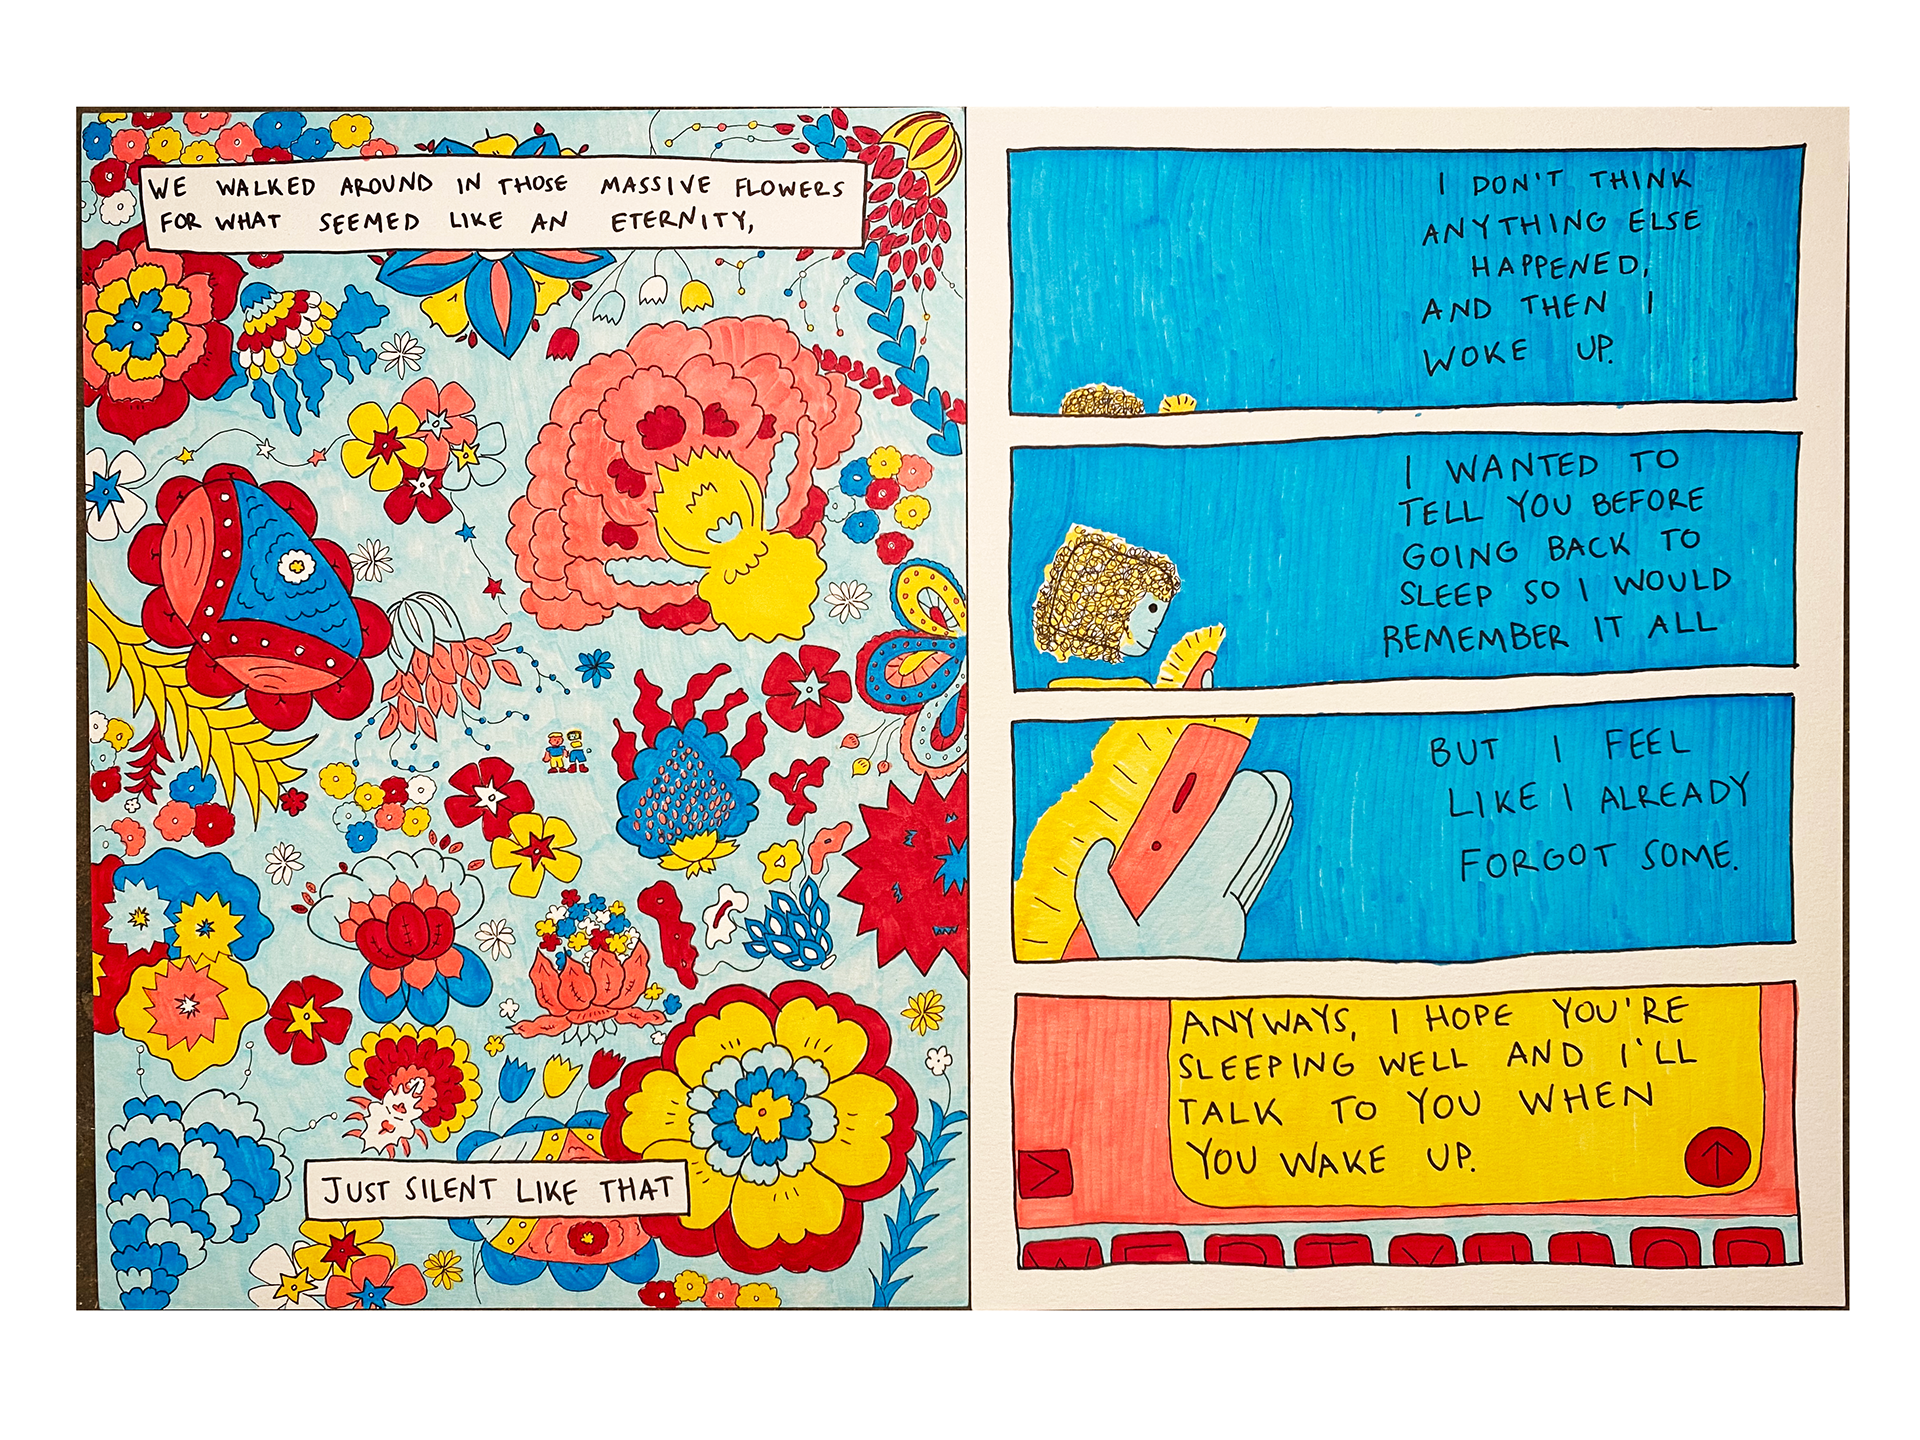 WE WALKED AROUND IN THOSE MASSIVE FLOWERS
FOR WHAT SEEMED LIKE AN ETERNITY,
JUST SILENT LIKE THAT
I DON'T THINK
ANYTHING ELSE
HAPPENED,
AND THEN I
WOKE UP.
I WANTED TO
TELL YOU BEFORE
GOING BACK TO
SLEEP SO I WOULD
REMEMBER IT ALL
BUT I FEEL
LIKE I ALREADY
FORGOT SOME.
ANYWAYS, I HOPE YOU'RE
SLEEPING WELL AND I'LL
TALK TO YOU WHEN
YOU WAKE UP.
W E R T Y U I O P